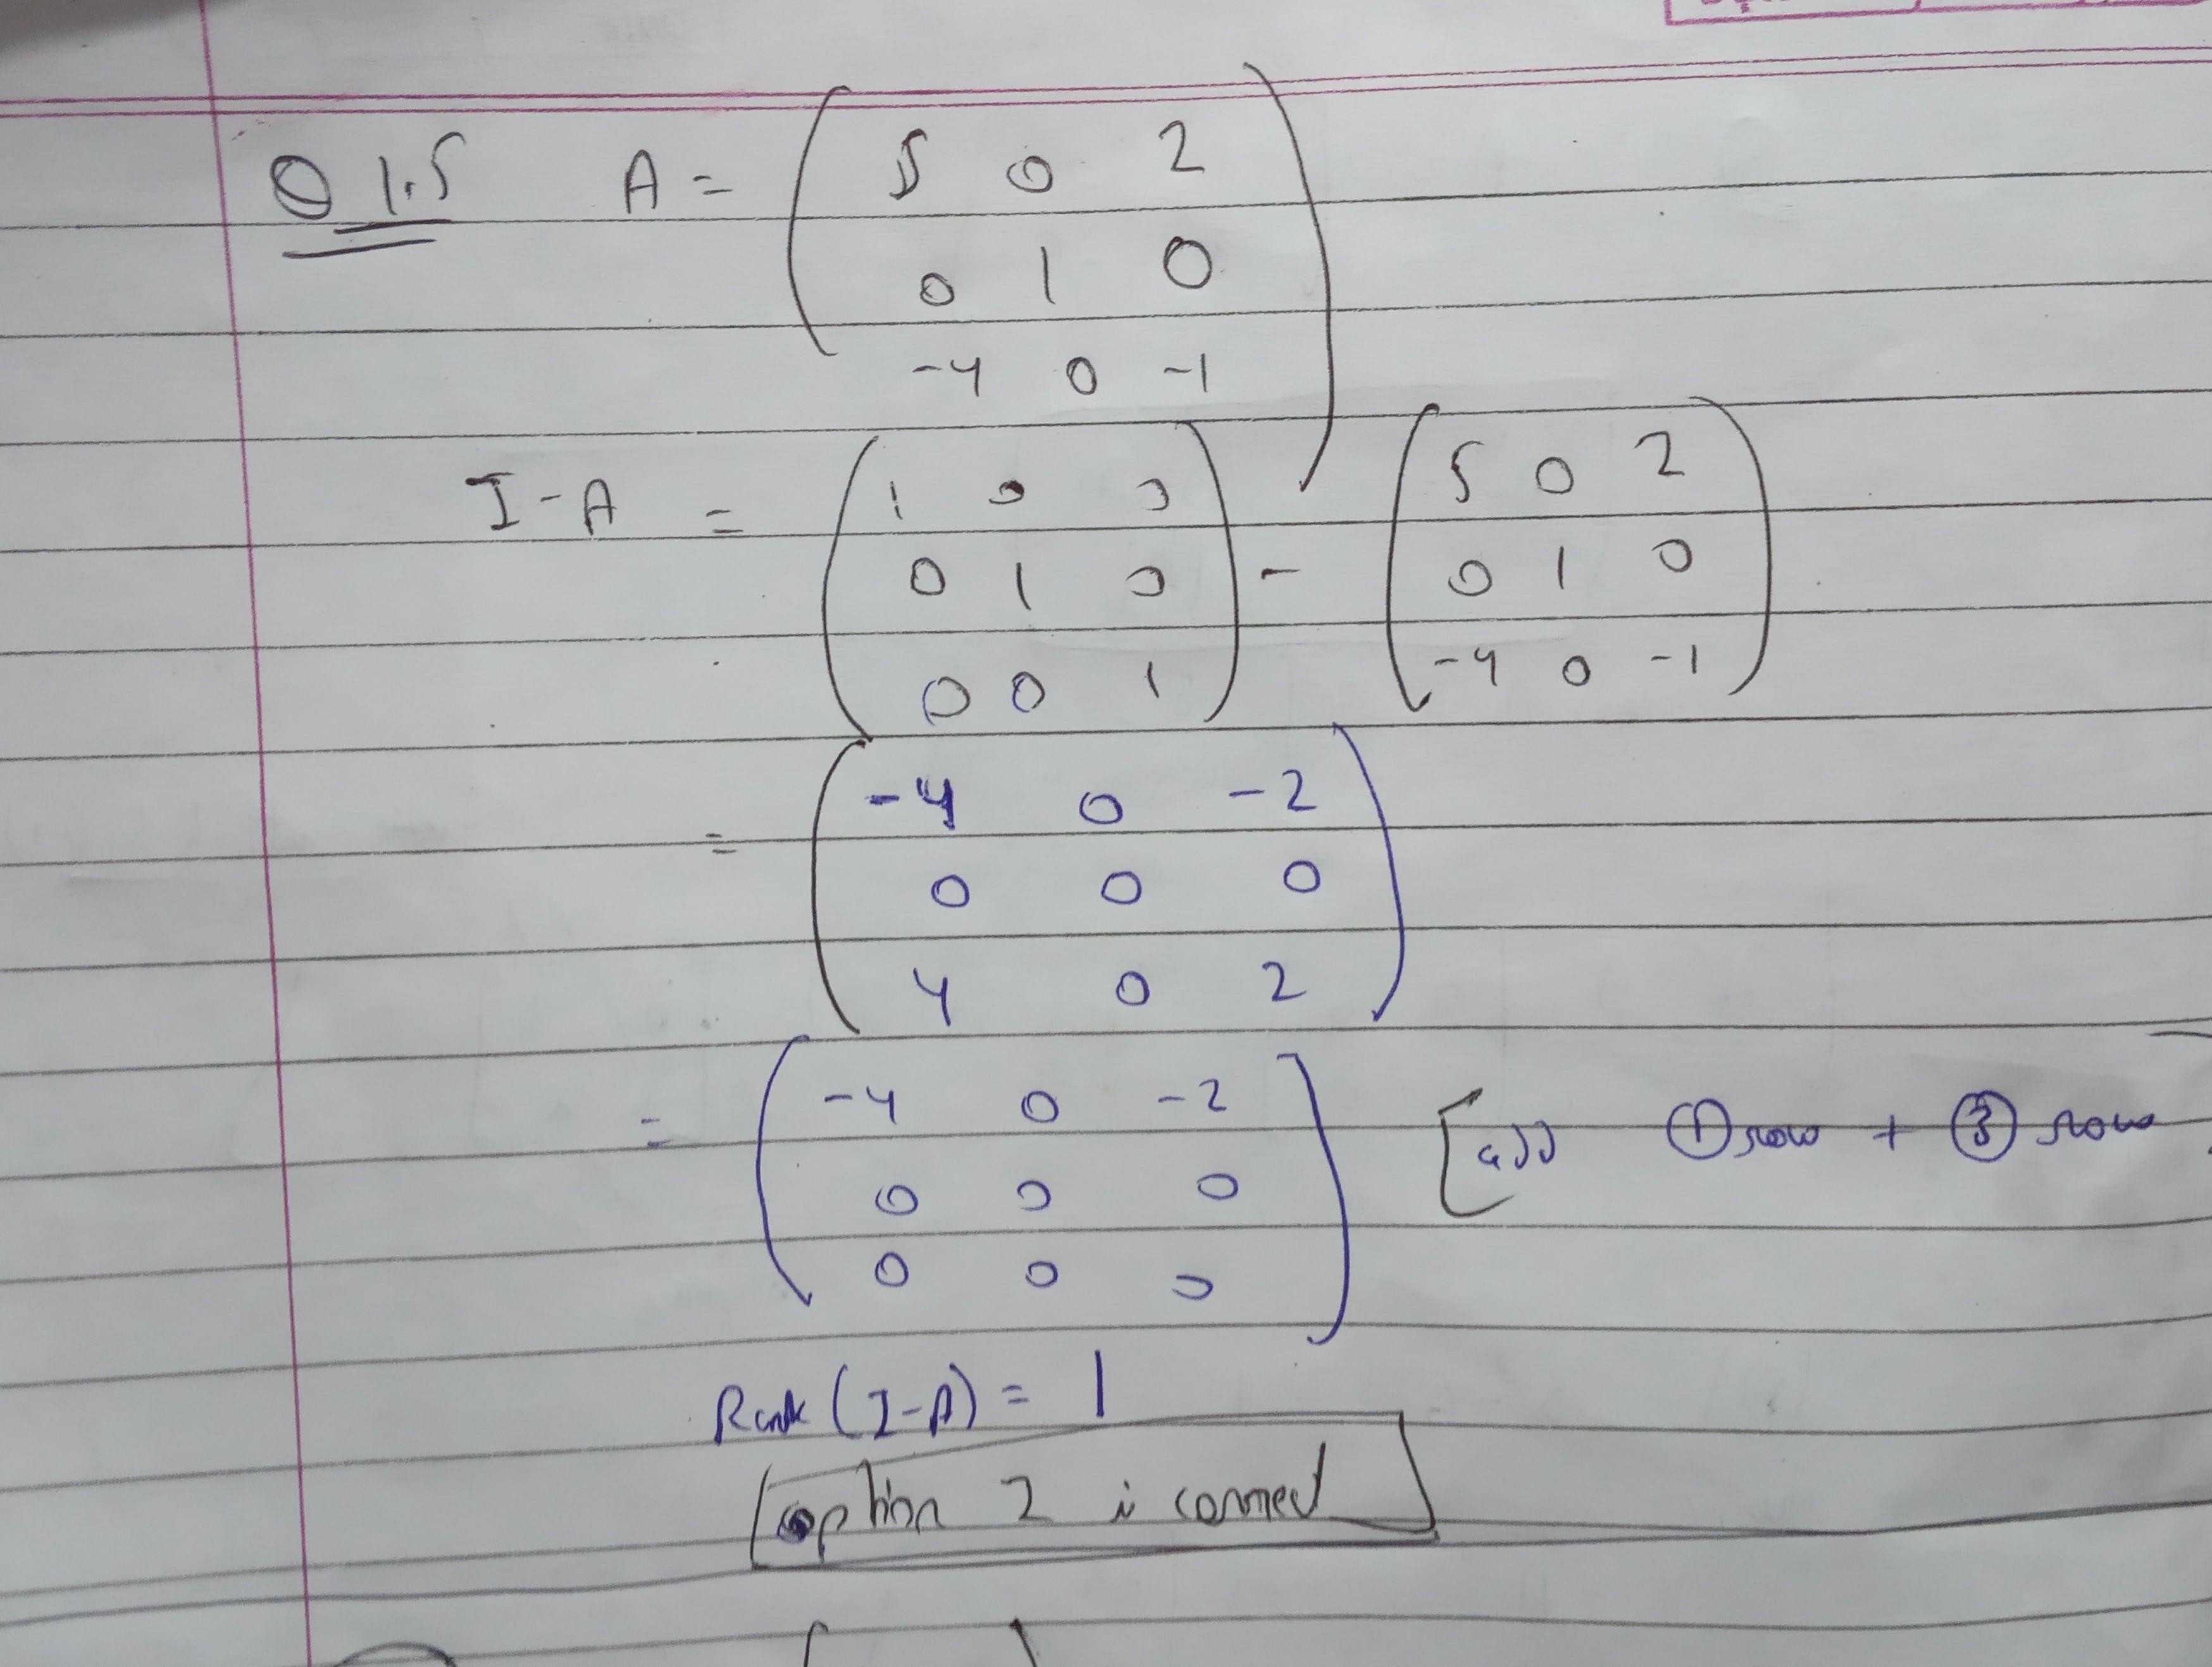 Q 1.5 A = ( 5 0 2
0 1 0
-4 0 -1 )
I - A = ( 1 0 0
0 1 0
0 0 1 ) - ( 5 0 2
0 1 0
-4 0 -1 )
= ( -4 0 -2
0 0 0
4 0 2 )
= ( -4 0 -2
0 0 0
0 0 0 ) [ add ① row + ③ row
Rank (I-A) = 1
option 2 is correct